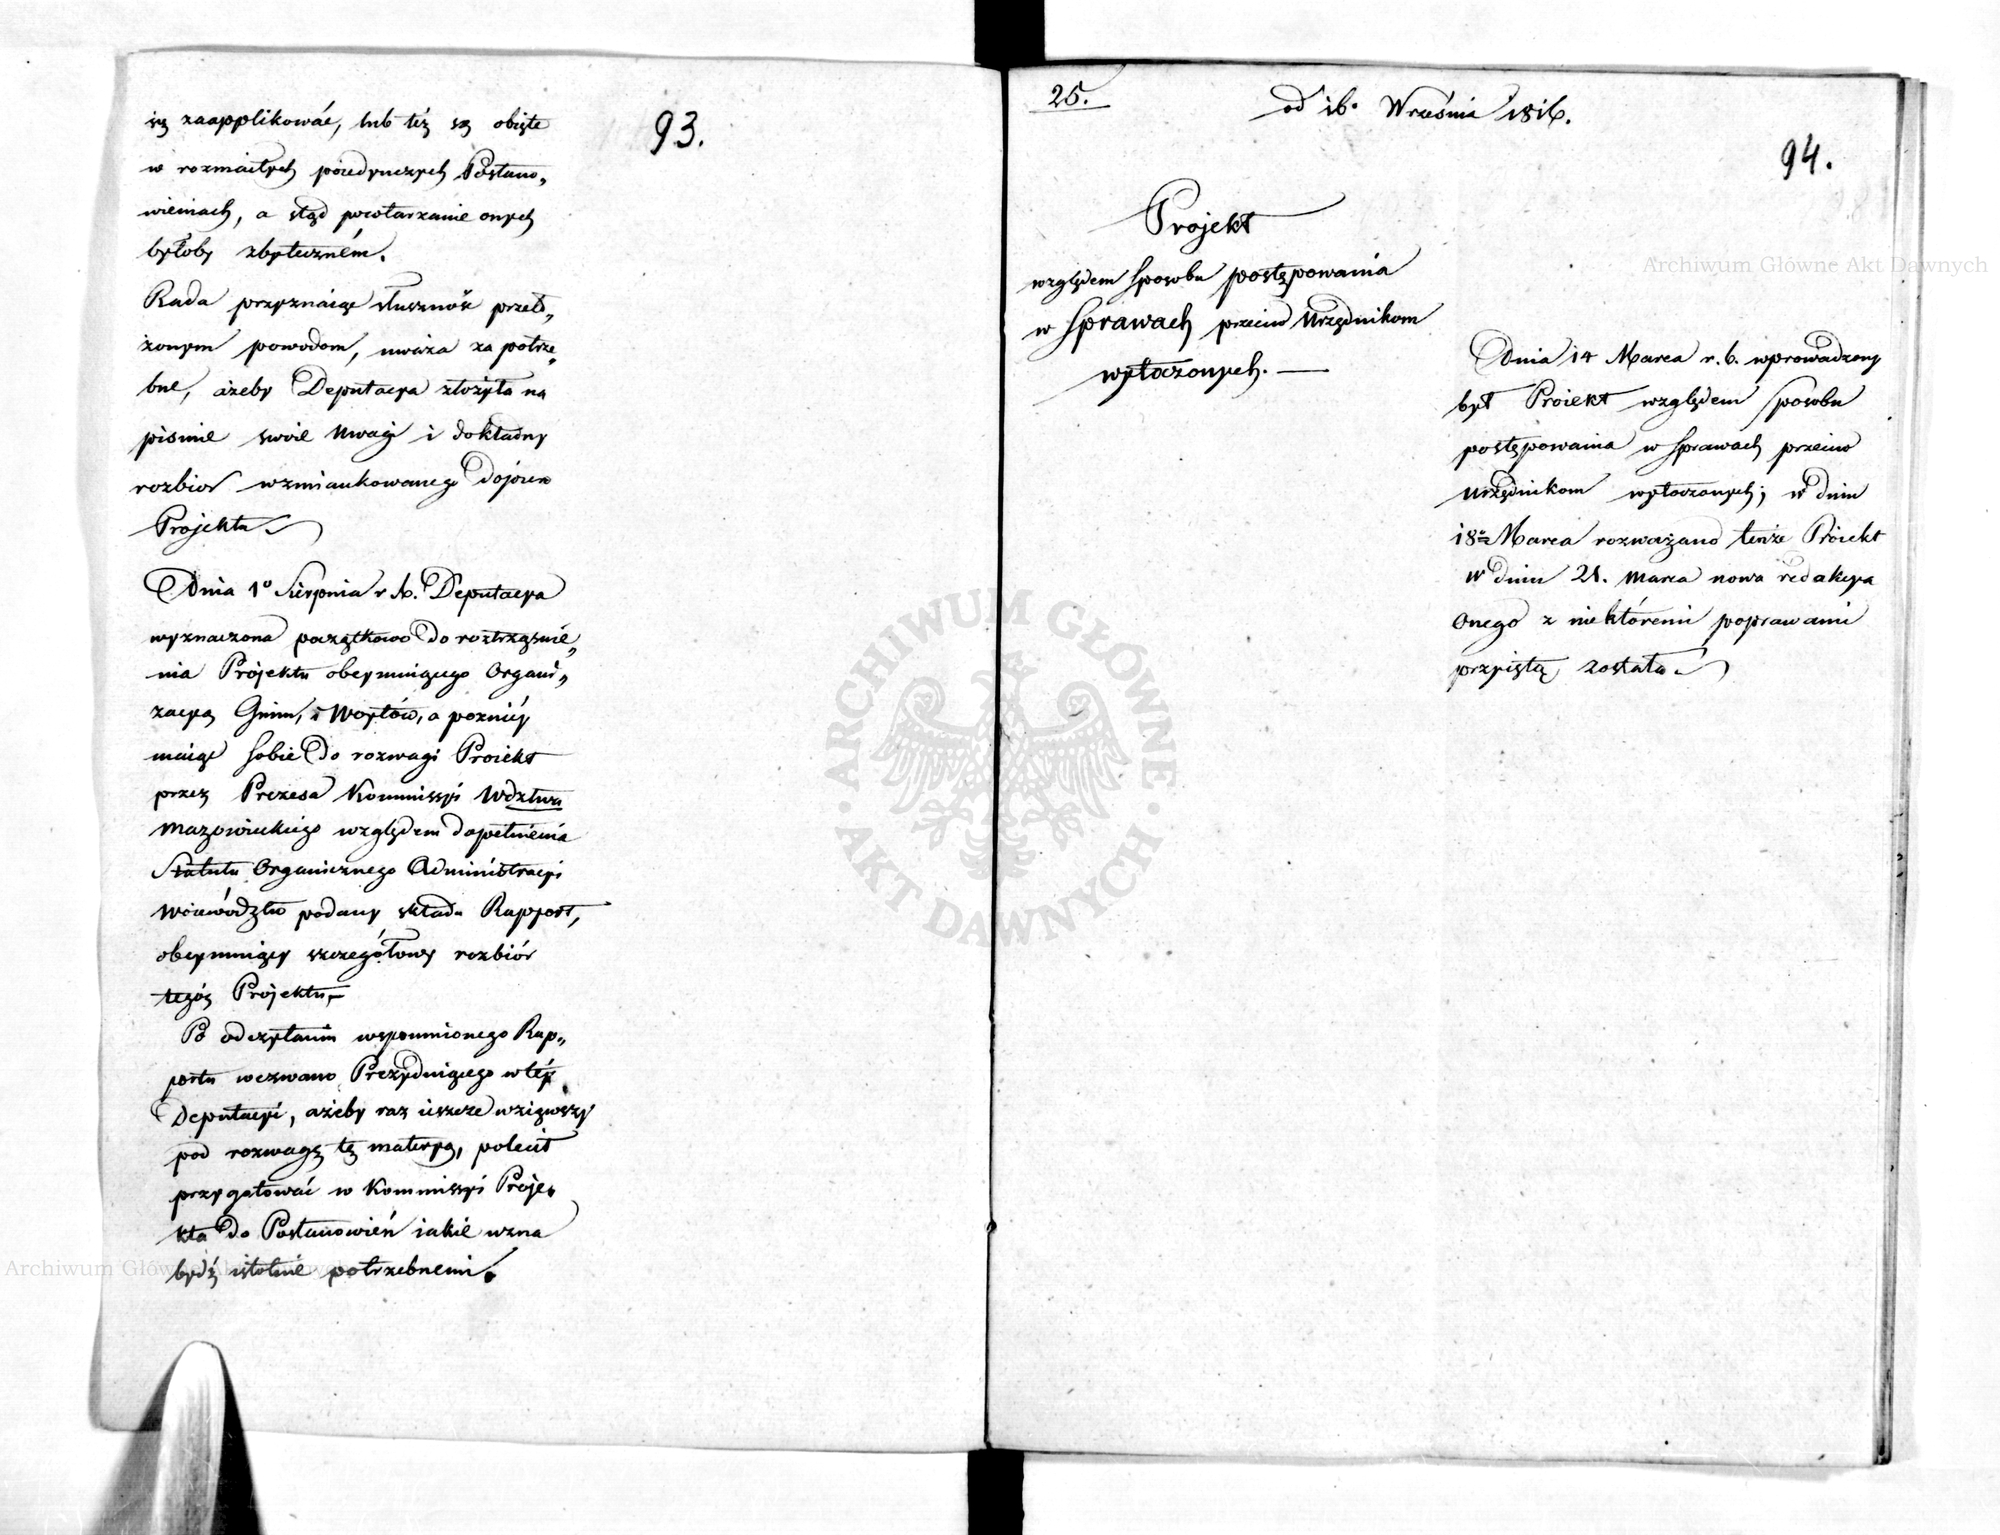 93.
się zaapplikować, lub też są obięte
w rozmaitych poiedynczych Postano„
wieniach, a stąd powtarzanie onych
byłoby zbyteczném.
Rada przyznaiąc słuszność przeło„
żonym powodom, uważa za potrze„
bne, ażeby Deputacya złożyła na
pismie swoie uwagi i dokładny
rozbior wzmiankowanego dopiero
Projektu.
Dnia 1º Sierpnia r. b. Deputacya
wyznaczona początkowo do roztrząśnie„
nia Projektu obeymuiącego Organi„
zacyą Gmin, i Woytów, a pozniéy
maiąc sobie do rozwagi Proiekt
przez Prezesa Kommissyi Wdztwa
Mazowieckiego względem dopełnienia
Statutu Organicznego Administracyi
Woiewództw podany składa Rapport,
obeymuiący szczegółowy rozbiór
tegóż Projektu.
Po odczytaniu wspomnionego Rap„
portu wezwano Prezyduiącego w téy
Deputacyi, ażeby raz ieszcze wziąwszy
pod rozwagę tę materyą, polecił
przygotować w Kommissyi Proje„
kta do Postanowień iakie uzna
bydź istotnie potrzebnemi.
25.
od 16. Września 1816.
94.
Projekt
względem sposobu postępowania
w sprawach przeciw Urzędnikom
wytoczonych.
Dnia 14 Marca r. b. wprowadzony
był Proiekt względem sposobu
postępowania w sprawach przeciw
Urzędnikom wytoczonych; w dniu
18. Marca rozważano tenże Proiekt
w dniu 21. Marca nowa redakcya
onego z niektóremi poprawami
przyiętą została.
Archiwum Główne Akt Dawnych
ARCHIWUM GŁÓWNE
AKT DAWNYCH
Archiwum Główne Akt Dawnych